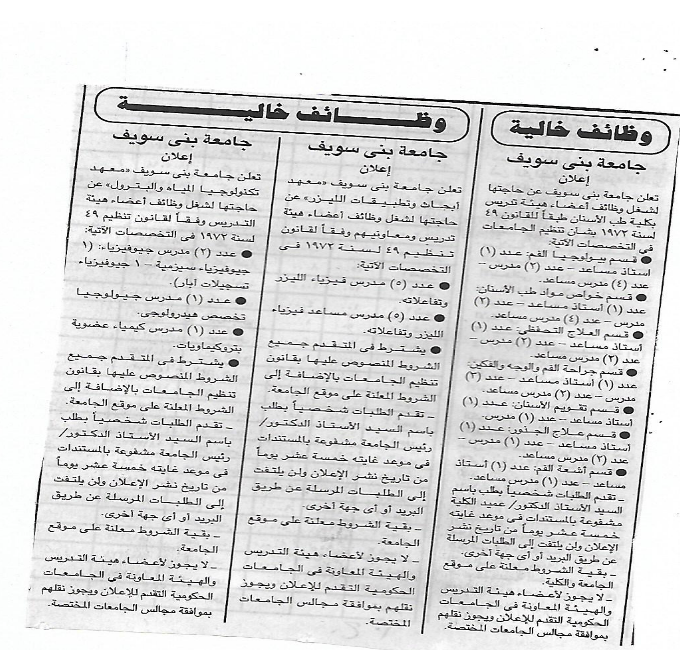 وظائف خالية
جامعة بنى سويف
إعلان
تعلن جامعة بنى سويف عن حاجتها
لشغل وظائف أعضاء هيئة تدريس
بكلية طب الأسنان طبقاً للقانون ٤٩
لسنة ١٩٧٢ بشأن تنظيم الجامعات
فى التخصصات الآتية:
● قسم بيولوجيا الفم: عدد (١)
أستاذ مساعد – عدد (٢) مدرس –
عدد (٤) مدرس مساعد.
● قسم خواص مواد طب الأسنان:
عدد (١) أستاذ مساعد – عدد (٢)
مدرس – عدد (٤) مدرس مساعد.
● قسم العلاج التحفظى: عدد (١)
أستاذ مساعد – عدد (٢) مدرس –
عدد (٢) مدرس مساعد.
● قسم جراحة الفم والوجه والفكين:
عدد (١) أستاذ مساعد – عدد (٣)
مدرس – عدد (٢) مدرس مساعد.
● قسم تقويم الأسنان: عدد (١)
أستاذ مساعد – عدد (١) مدرس.
● قسم علاج الجذور: عدد (١)
أستاذ مساعد – عدد (١) مدرس –
عدد (٢) مدرس مساعد.
● قسم أشعة الفم: عدد (١) أستاذ
مساعد – عدد (١) مدرس مساعد.
– تقدم الطلبات شخصياً بطلب باسم
السيد الأستاذ الدكتور/ عميد الكلية
مشفوعة بالمستندات فى موعد غايته
خمسة عشر يوماً من تاريخ نشر
الإعلان ولن يلتفت إلى الطلبات المرسلة
عن طريق البريد أو أى جهة أخرى.
– بقية الشروط معلنة على موقع
الجامعة والكلية.
– لا يجوز لأعضاء هيئة التدريس
والهيئة المعاونة فى الجامعات
الحكومية التقدم للإعلان ويجوز نقلهم
بموافقة مجالس الجامعات المختصة.
وظائف خالية
جامعة بنى سويف
إعلان
تعلن جامعة بنى سويف «معهد
أبحاث وتطبيقات الليزر» عن
حاجتها لشغل وظائف أعضاء هيئة
تدريس ومعاونيهم وفقاً لقانون
تنظيم ٤٩ لسنة ١٩٧٢ فى
التخصصات الآتية:
● عدد (٥) مدرس فيزياء الليزر
وتفاعلاته.
● عدد (٥) مدرس مساعد فيزياء
الليزر وتفاعلاته.
● يشترط فى المتقدم جميع
الشروط المنصوص عليها بقانون
تنظيم الجامعات بالإضافة إلى
الشروط المعلنة على موقع الجامعة.
– تقدم الطلبات شخصياً بطلب
باسم السيد الأستاذ الدكتور/
رئيس الجامعة مشفوعة بالمستندات
فى موعد غايته خمسة عشر يوماً
من تاريخ نشر الإعلان ولن يلتفت
إلى الطلبات المرسلة عن طريق
البريد أو أى جهة أخرى.
– بقية الشروط معلنة على موقع
الجامعة.
– لا يجوز لأعضاء هيئة التدريس
والهيئة المعاونة فى الجامعات
الحكومية التقدم للإعلان ويجوز
نقلهم بموافقة مجالس الجامعات
المختصة.
جامعة بنى سويف
إعلان
تعلن جامعة بنى سويف «معهد
تكنولوجيا المياه والبترول» عن
حاجتها لشغل وظائف أعضاء هيئة
التدريس وفقاً لقانون تنظيم ٤٩
لسنة ١٩٧٢ فى التخصصات الآتية:
● عدد (٢) مدرس جيوفيزياء: (١
جيوفيزياء سيزمية – ١ جيوفيزياء
تسجيلات آبار).
● عدد (١) مدرس جيولوجيا
تخصص هيدرولوجى.
● عدد (١) مدرس كيمياء عضوية
بتروكيماويات.
● يشترط فى المتقدم جميع
الشروط المنصوص عليها بقانون
تنظيم الجامعات بالإضافة إلى
الشروط المعلنة على موقع الجامعة.
– تقدم الطلبات شخصياً بطلب
باسم السيد الأستاذ الدكتور/
رئيس الجامعة مشفوعة بالمستندات
فى موعد غايته خمسة عشر يوماً
من تاريخ نشر الإعلان ولن يلتفت
إلى الطلبات المرسلة عن طريق
البريد أو أى جهة أخرى.
– بقية الشروط معلنة على موقع
الجامعة.
لا يجوز لأعضاء هيئة التدريس
والهيئة المعاونة فى الجامعات
الحكومية التقدم للإعلان ويجوز نقلهم
بموافقة مجالس الجامعات المختصة.